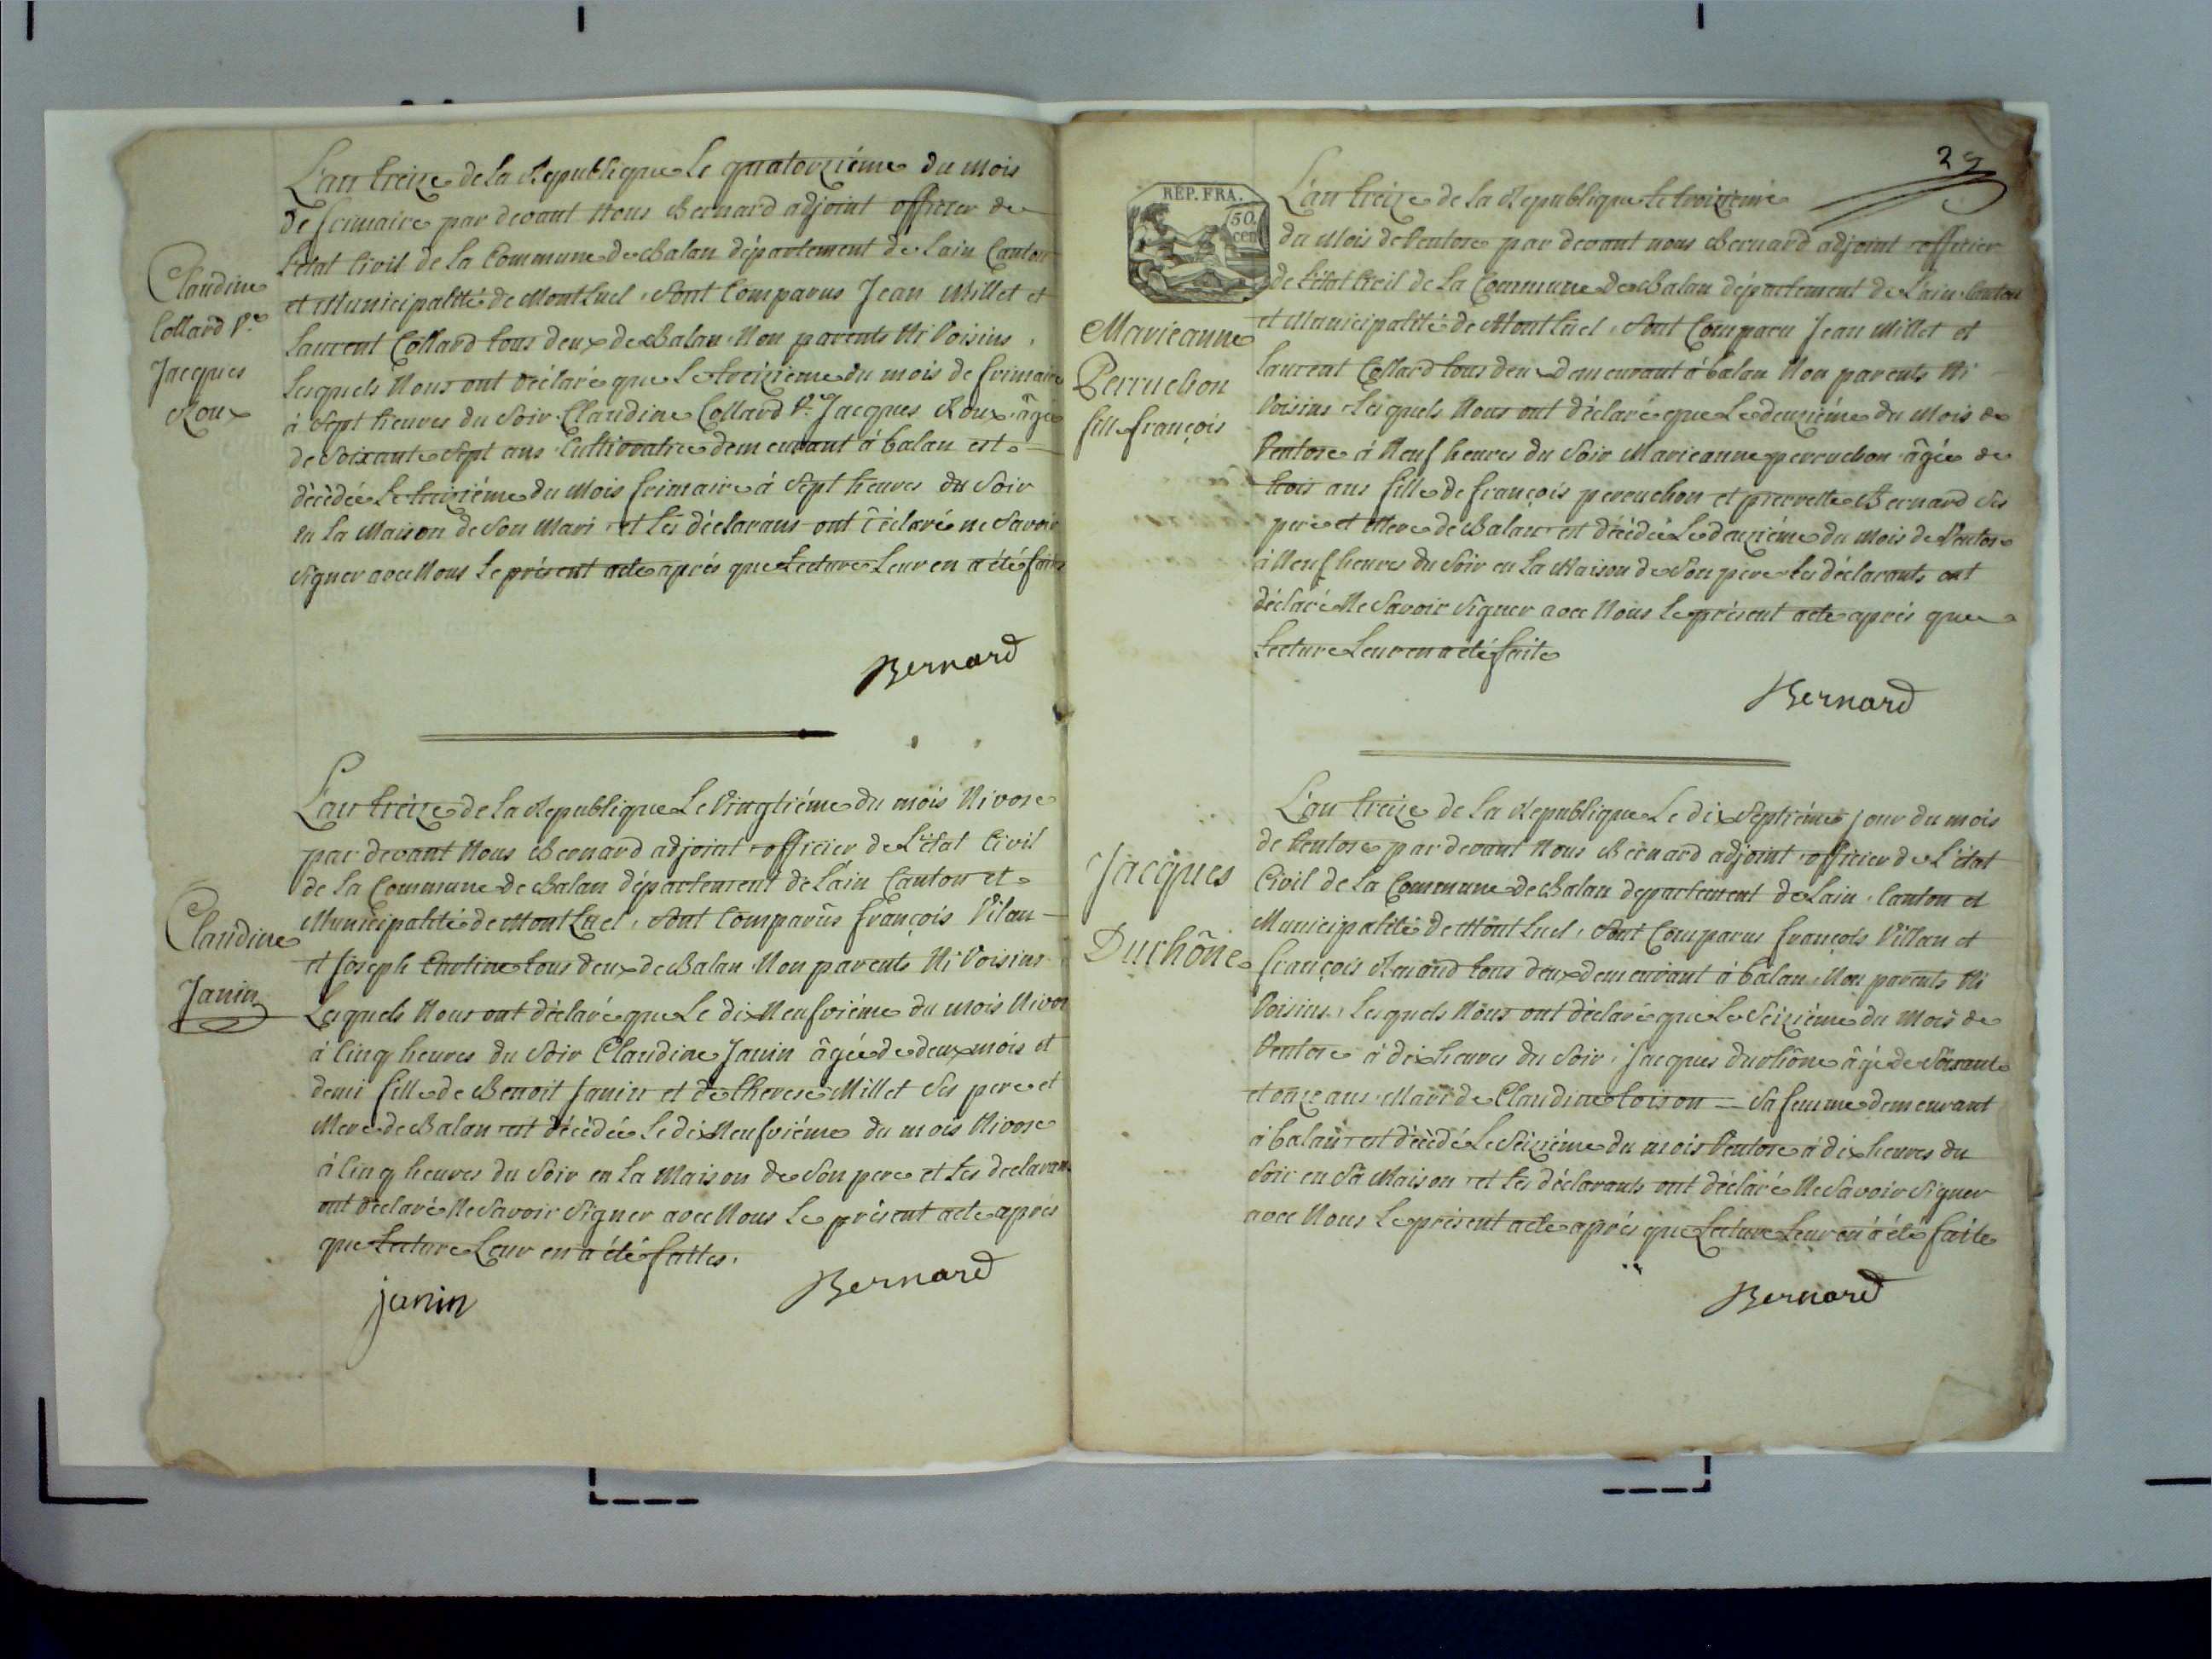 Claudine
Collard Ve
Jacques
Roux
L'an treize de la Republique Le quatorzième du mois
de frimaire par devant Nous Bernard adjoint officier de
L'état Civil de la Commune de Balan département de Lain Canton
et Municipalité de MontLuel, Sont Comparus Jean Millet et
Laurent Collard tous deux de Balan Non parents Ni Voisins,
Lesquels Nous ont déclaré que Le treizième du mois de frimaire
à Sept heures du Soir Claudine Collard Ve Jacques Roux âgée
de Soixante Sept ans Cultivatrice demeurant à balan est
décèdée Le treizième du Mois frimaire à Sept heures du Soir
en la Maison de Son Mari et Les déclarans ont déclaré ne Savoir
Signer avec Nous Le présent acte après que Lecture Leur en a été faite
Bernard
Claudine
Janin
L'an treize de la Republique Le Vingtième du mois Nivose
par devant Nous Bernard adjoint officier de L'état Civil
de la Commune de Balan département de Lain Canton et
Municipalité de MontLuel, Sont Comparus françois Vilan
et Joseph tous deux de Balan Non parents Ni Voisins
Lesquels Nous ont déclaré que Le dix Neufvième du mois Nivos
à Cinq heures du Soir Claudine Janin âgée de deux mois et
demi fille de Benoit Janin et de therese Millet Ses pere et
Mere de Balan est décèdée Le dix Neufvième du mois Nivose
à Cinq heures du Soir en La Maison de Son pere et Les declarans
ont déclaré Ne Savoir Signer avec Nous Le présent acte après
que Lecture Leur en a été faittes.
janin Bernard
29
REP. FRA.
50
cen
Marieanne
Perruchon
fille françois
L'an treize de la Republique Le troizieme
du Mois de Ventose par devant nous Bernard adjoint officier
de L'état Civil de La Commune de Balan département de L'ain Canton
et Municipalité de MontLuel, Sont Comparu Jean Millet et
Laurent Collard tous deu demeurant à balan Non parents Ni
Voisins Lesquels Nous ont déclaré que Le deuzième du Mois de
Ventose à Neuf heures du Soir Marieanne perruchon âgée de
trois ans fille de françois perruchon et pierrette Bernard Ses
pere et Mere de Balan est décèdée Le deuzième du Mois de Ventose
à Neuf heures du Soir en La Maison de Son pere Les déclarants ont
déclaré Ne Savoir Signer avec Nous Le présent acte après que
Lecture Leur en a été faite
Bernard
Jacques
Durhône
L'an treize de La Republique Le dix Septième jour du mois
de Ventose par devant Nous Bernard adjoint officier de L'état
Civil de La Commune de Balan departement de Lain, Canton et
Municipalité de MontLuel, Sont Comparus françois Villan et
françois Renaud tous deux demeurant à balan, Non parents Ni
Voisins, Lesquels Nous ont déclaré que Le Seizième du Mois de
Ventose à dix heures du Soir, Jacques durhône âgé de Soixante
et onze ans Mari de Claudine Loison Sa femme demeurant
à balan est décèdé Le Seizième du mois Ventose à dix heures du
Soir en Sa Maison et Les déclarants ont déclaré Ne Savoir Signer
avec Nous Le présent acte après que Lecture Leur en a été faite
Bernard